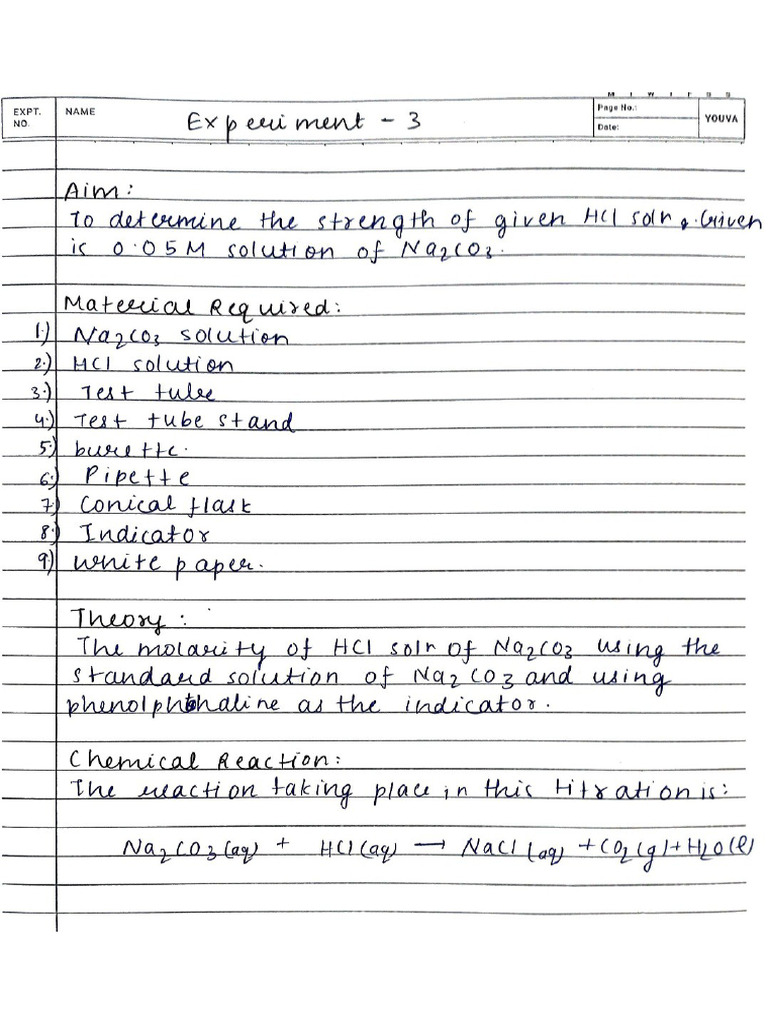 EXPT. NO. NAME Experiment - 3 Page No.: Date: YOUVA
Aim:
To determine the strength of given HCl soln. Given
is 0.05M solution of Na2CO3.
Material Required:
1.) Na2CO3 solution
2.) HCl solution
3.) Test tube
4.) Test tube stand
5.) burette.
6.) Pipette
7.) Conical flask
8.) Indicator
9.) White paper.
Theory:
The molarity of HCl soln of Na2CO3 using the
standard solution of Na2CO3 and using
phenolphthaline as the indicator.
Chemical Reaction:
The reaction taking place in this titration is:
Na2CO3(aq) + HCl(aq) → NaCl(aq) + CO2(g) + H2O(l)